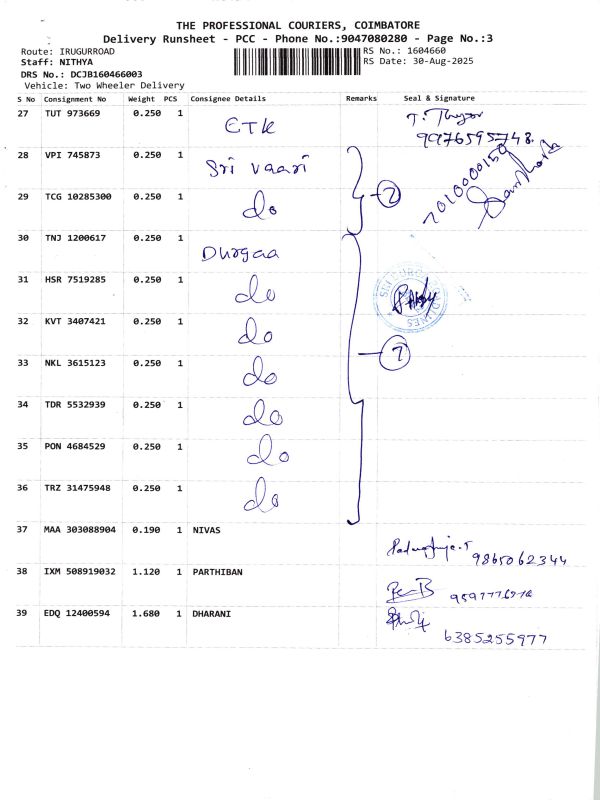 THE PROFESSIONAL COURIERS, COIMBATORE
Delivery Runsheet - PCC - Phone No.:9047080280 - Page No.:3
Route: IRUGURROAD
RS No.: 1604660
Staff: NITHYA
RS Date: 30-Aug-2025
DRS No.: DCJB160466003
Vehicle: Two Wheeler Delivery
S No Consignment No Weight PCS Consignee Details Remarks Seal & Signature
27 TUT 973669 0.250 1 ETK
28 VPI 745873 0.250 1 Sri Vaari
7010000150
29 TCG 10285300 0.250 1 do 2
30 TNJ 1200617 0.250 1 Durgaa
31 HSR 7519285 0.250 1 do
32 KVT 3407421 0.250 1 do
33 NKL 3615123 0.250 1 do 7
34 TDR 5532939 0.250 1 do
35 PON 4684529 0.250 1 do
36 TRZ 31475948 0.250 1 do
37 MAA 303088904 0.190 1 NIVAS
9865062344
38 IXM 508919032 1.120 1 PARTHIBAN
39 EDQ 12400594 1.680 1 DHARANI
6385255977